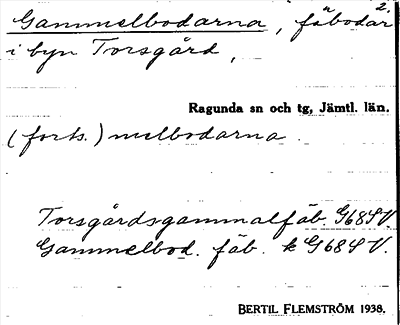 2.
Gammelbodarna, fäbodar
i byn Torsgård,
Ragunda sn och tg, Jämtl. län.
(forts.) melbodarna.
Torsgårdsgammalfäb. G68SV.
Gammelbod. fäb. k G68SV.
BERTIL FLEMSTRÖM 1938.